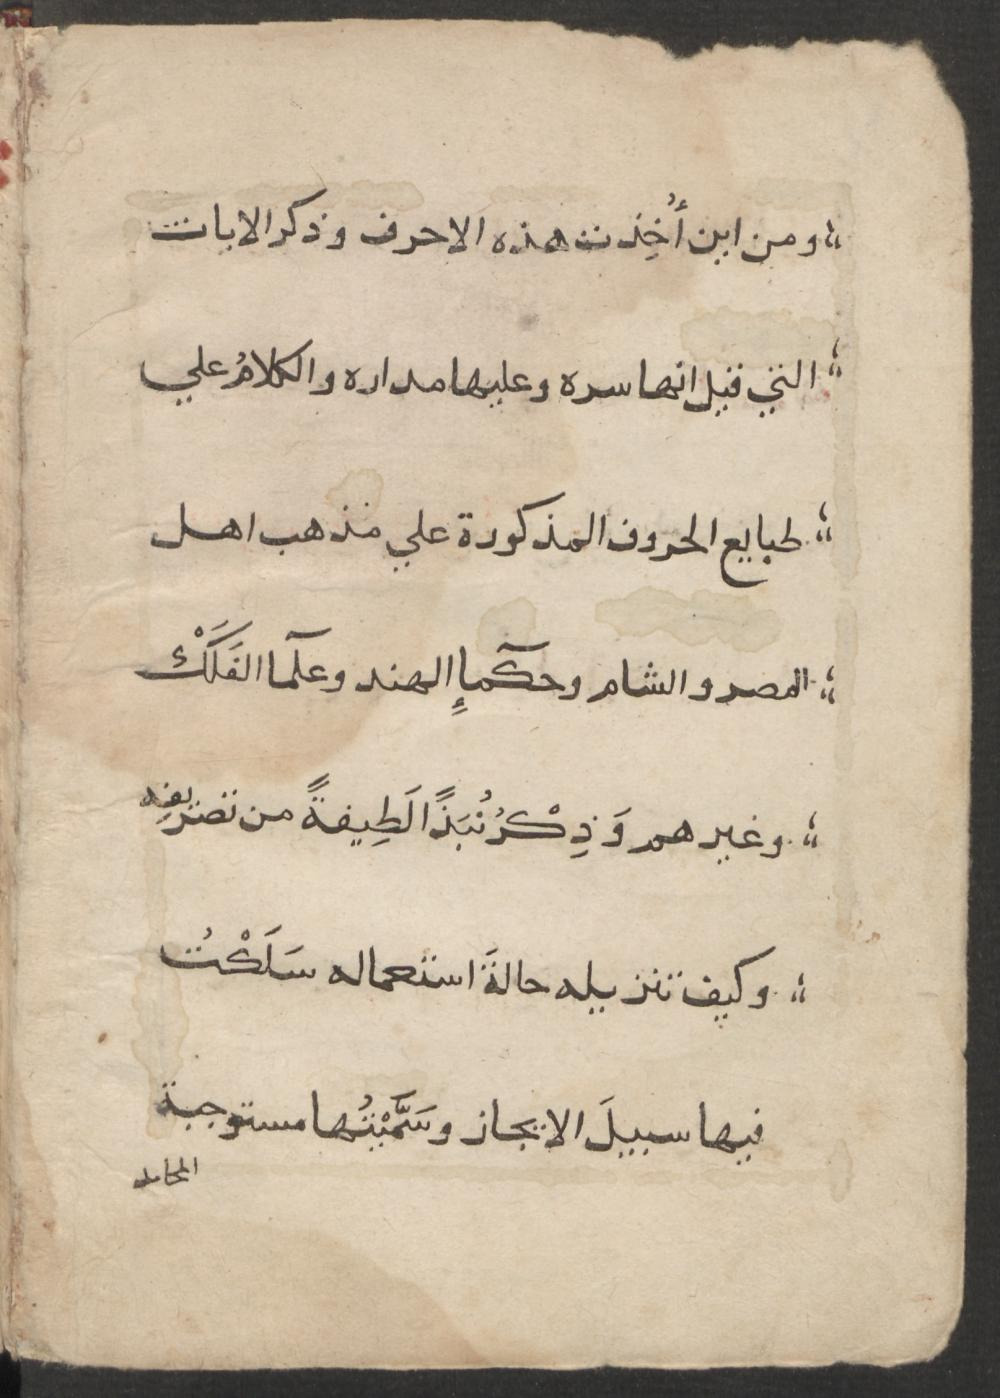 ومن اين أُخِذت هذه الاحرف وذكر الايات
التي قيل انها سره وعليها مداره والكلامُ علي
طبايع الحروف المذكورة علي مذهب اهل
المصر والشام وحكمآإ الهند وعلمآ الفَلَكْ
وغيرهم وَذِكْرُ نُبَذًا لَطِيفةً من تصريفِه
وكيف تنزيله حالةَ استعماله سَلَكْتُ
فيها سبيلَ الايجاز وسَمَّيْتُها مستوجبة
المحامد